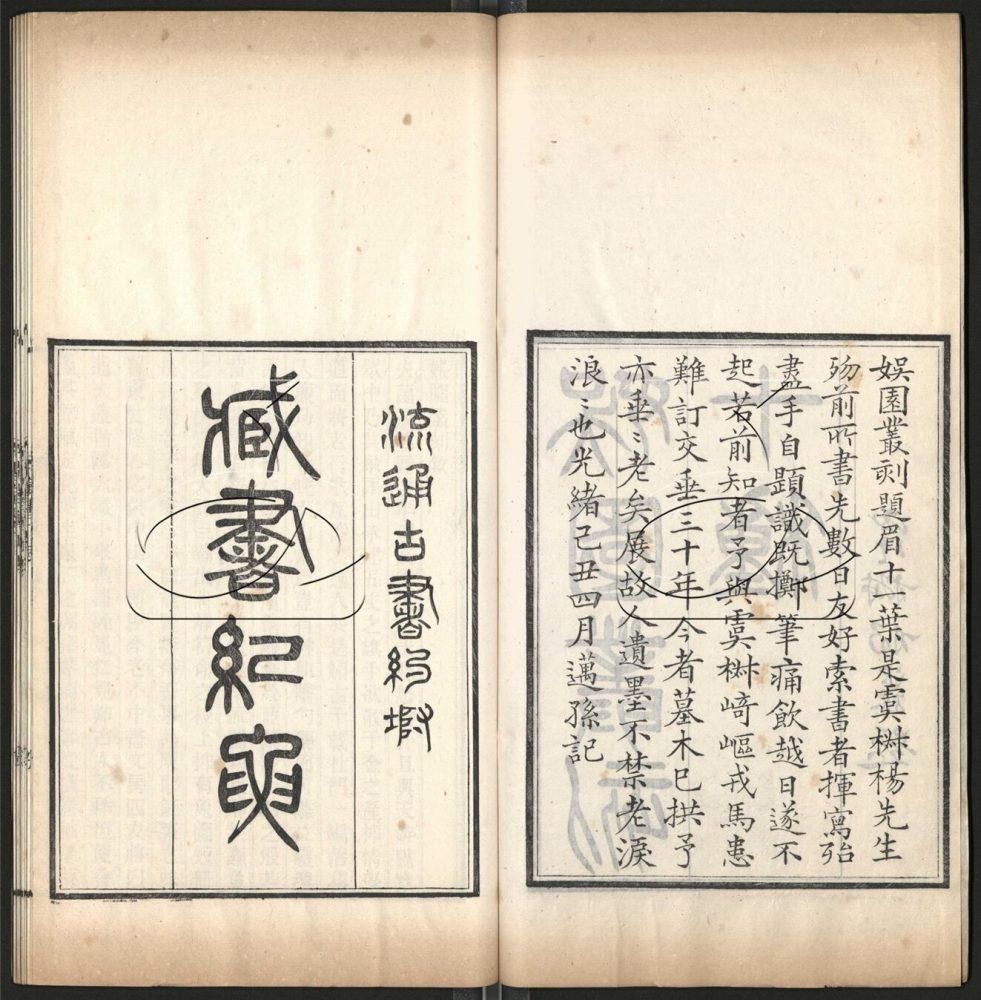 娛園叢刻題眉十一葉是楊先生
歿前所書先數日友好索書者揮寫殆
盡手自題識既擲筆痛飲越日遂不
起若前知者予與崎嶇戎馬患
難訂交垂三十年今者墓木已拱予
亦垂〻老矣展故人遺墨不禁老淚
浪〻也光緒己丑四月邁孫記
流通古書約坿
藏書紀要